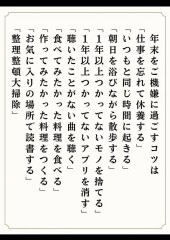 年末をご機嫌に過ごすコツは
「仕事を忘れて休養する」
「いつもと同じ時間に起きる」
「朝日を浴びながら散歩する」
「1年以上つかってないモノを捨てる」
「1年以上つかってないアプリを消す」
「聴いたことがない曲を聴く」
「食べてみたかった料理を食べる」
「作ってみたかった料理をつくる」
「お気に入りの場所で読書する」
「整理整頓大掃除」